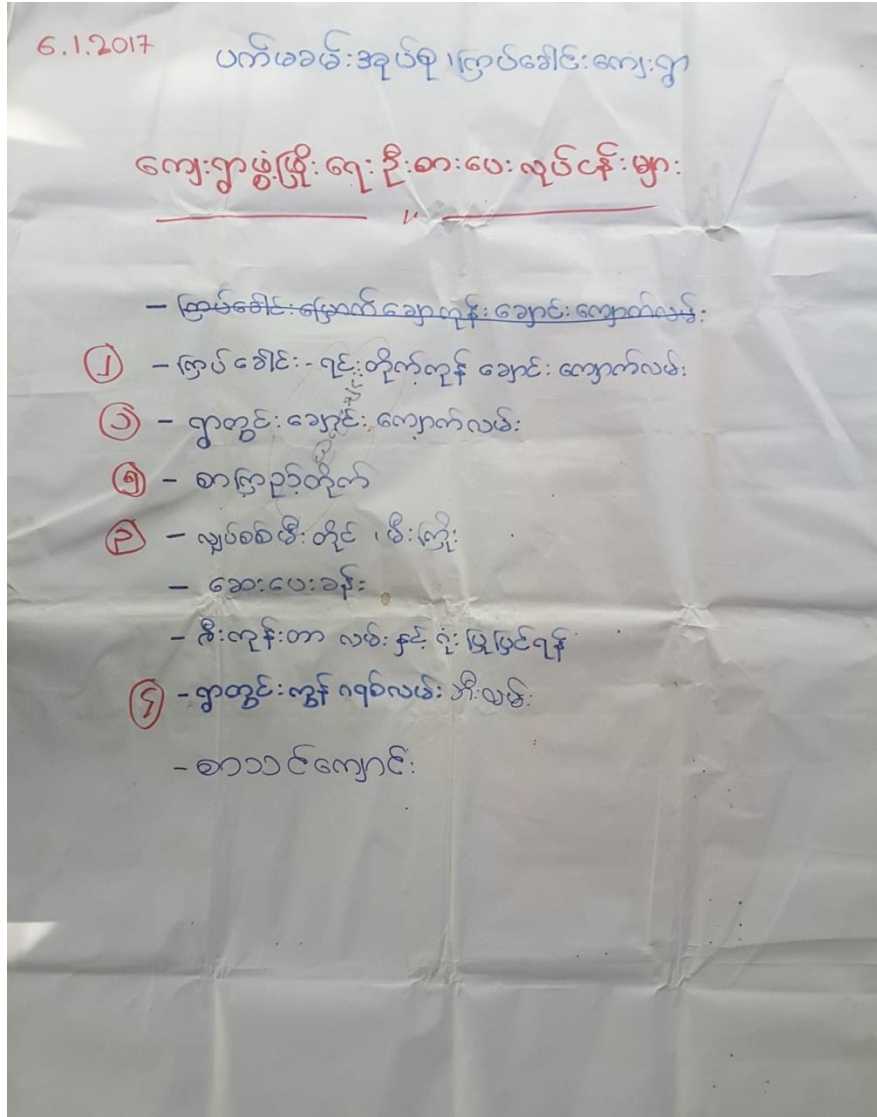 6.1.2017
ပက်မခမ်းအုပ်စု ၊ ကြပ်ခေါင်းကျေးရွာ
ကျေးရွာဖွံ့ဖြိုးရေး ဦးစားပေးလုပ်ငန်းများ
- ကြပ်ခေါင်း မြောက်ချောကုန်း ချောင်းကျောက်လမ်း
၁ - ကြပ်ခေါင်း - ရင်းတိုက်ကုန် ချောင်း ကျောက်လမ်း
၁ - ရွာတွင်း ချောင်း ကျောက်လမ်း
၅ - စာကြည့်တိုက်
၃ - လျှပ်စစ်မီးတိုင် ၊ မီးကြိုး
- ဆေးပေးခန်း
- ဇီးကုန်းတာ လမ်းနှင့် ဂုံး ပြုပြင်ရန်
၄ - ရွာတွင်း ကွန် ဂရစ်လမ်း
- စာသင်ကျောင်း